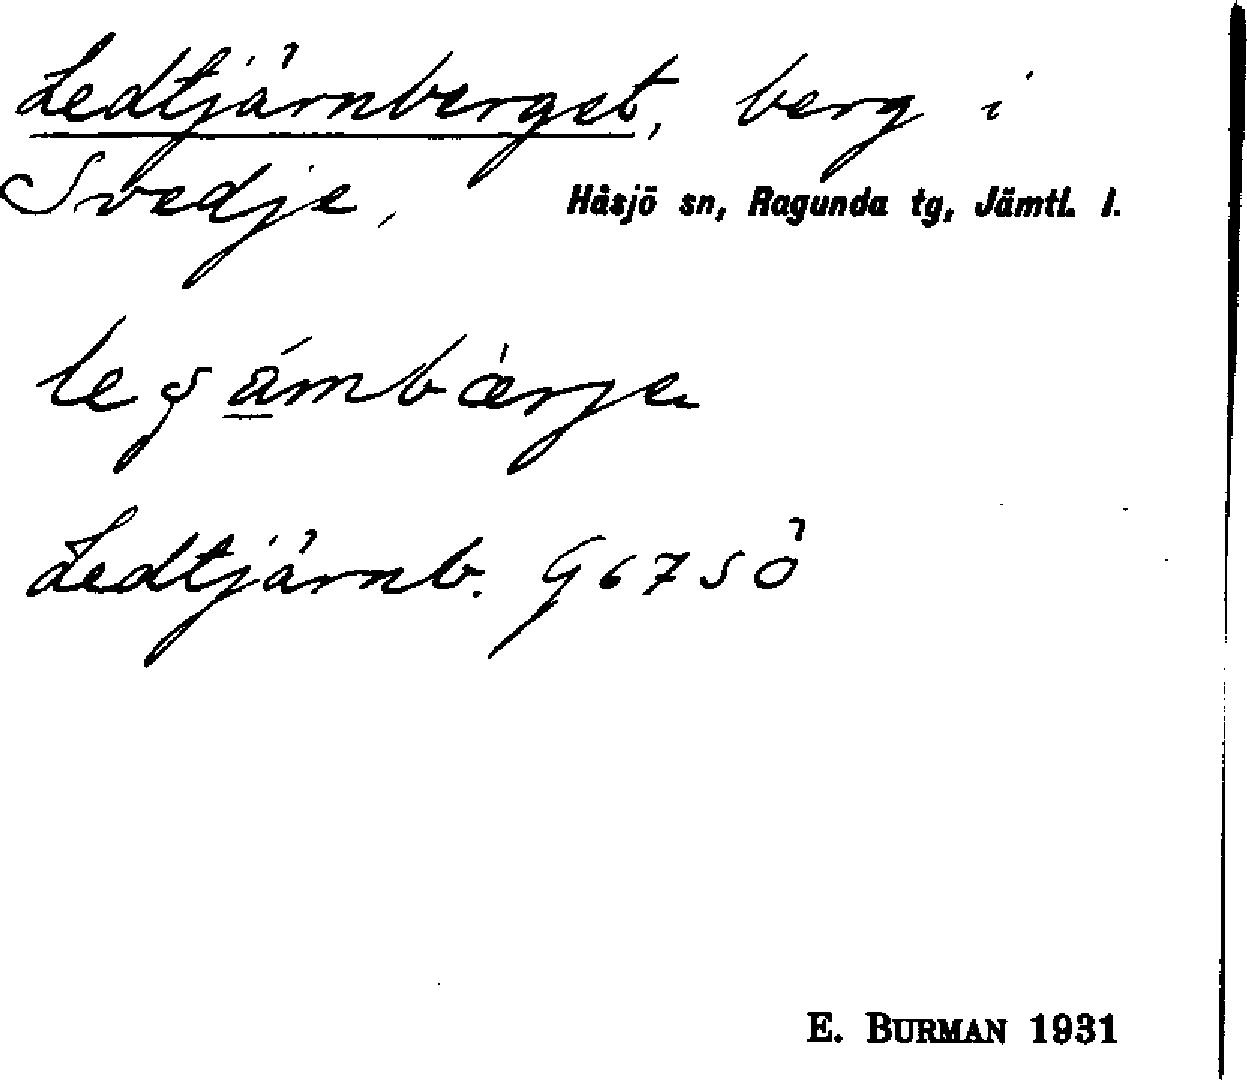 Ledtjärnberget, berg i
Svedje, Håsjö sn, Ragunda tg, Jämtl. l.
Ledtjärnb. G67SÖ
E. BURMAN 1931